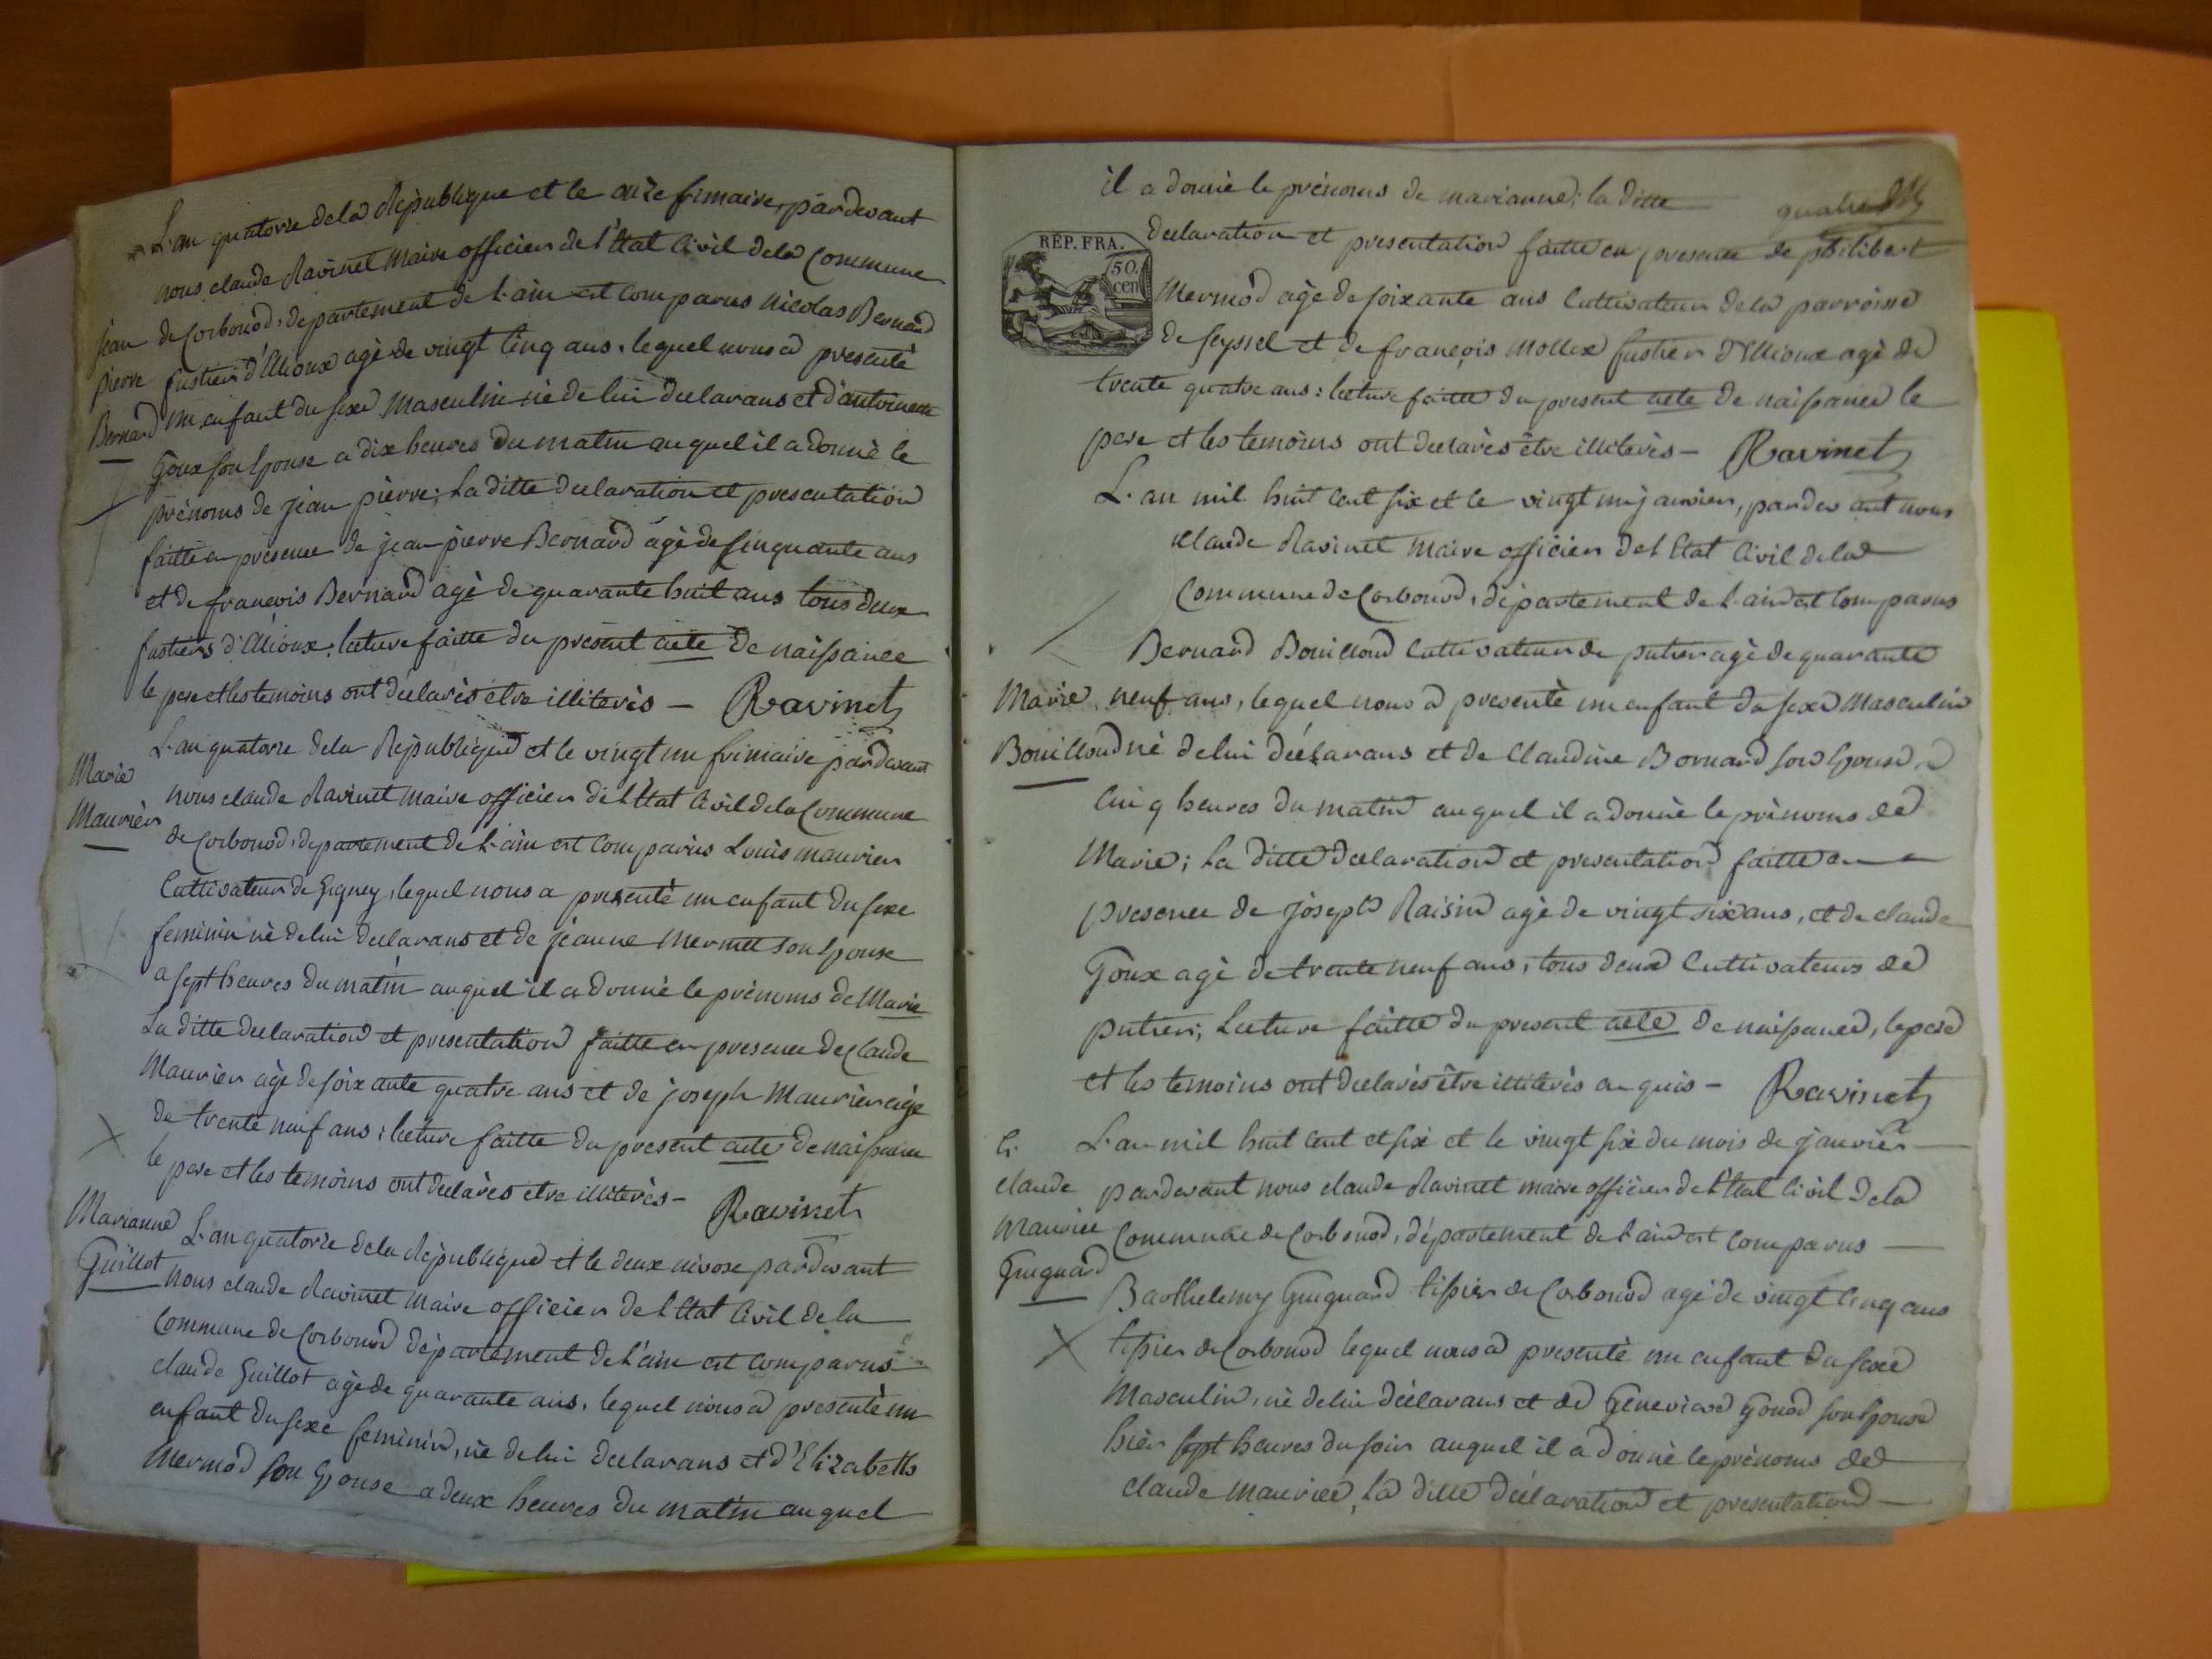 L'an quatorze dela République et le onze frimaire, pardevant
nous claude Ravinet Maire officier de l'Etat Civil dela Commune
jean de Corbonod, departement de l'ain est comparus Nicolas Bernard
pierre fustier d'Ilioux agè de vingt Cinq ans, lequel nous a presentè
Bernard un enfant du sexe Masculin nè de lui declarans et d'antoinette
Goux son Epouse a dix heures du matin auquel il a donnè le
prènoms de jean pierre; La ditte declaration et presentation
faitte en presence de jean pierre Bernard agè de Cinquante ans
et de francois Bernard agè de quarante huit ans tous deux
fustiers d'Ilioux, lecture faitte du present acte de naissance
le pere et les temoins ont dèclarès etre illiterès — Ravinet
L'an quatorze dela Rèpublique et le vingt un frimaire pardevant
Marie
nous claude Ravinet Maire officier de l'Etat Civil dela Commune
Maurier
de Corbonod, departement de l'ain est comparus Louis maurier
Cultivateur de Gigney, lequel nous a presentè un enfant du sexe
feminin nè delui declarans et de jeanne Mermet son Epouse
a sept heures du matin auquel il a donnè le prènoms de Marie
La ditte declaration et presentation faitte en presence de Claude
Maurier agè de soixante quatre ans et de joseph Maurier agè
de trente neuf ans; lecture faitte du present acte de naissance
le pere et les temoins ont declarès etre illiterès — Ravinet
Marianne L'an quatorze dela Rèpublique et le deux nivose pardevant
Guillot nous claude Ravinet Maire officier de l'Etat Civil de la
Commune de Corbonod dèpartement de l'ain est comparus
claude Guillot agè de quarante ans, lequel nous a presentè un
enfant du sexe feminin, nè de lui declarans et d'Elizabeth
Mermod son Epouse a deux heures du matin auquel
il a donnè le prènoms de marianne; la ditte quatre
REP. FRA.
50.
cen
declaration et presentation faitte en presence de philibert
Mermod agè de soixante ans Cultivateur dela parroisse
de seyssel et de françois Mollex fustier d'Ilioux agè de
trente quatre ans: lecture faitte du present acte de naissance le
pere et les temoins ont declarès être illiterès — Ravinet
L'an mil huit cent six et le vingt un janvier, pardevant nous
claude Ravinet Maire officier de l'Etat Civil dela
Commune de Corbonod, dèpartement de l'ain est comparus
Bernard Bouilloud Cultivateur de putier agè de quarante
Marie neuf ans, lequel nous a presentè un enfant du sexe Masculin
Bouilloud nè de lui dèclarans et de Claudine Bornard son Epouse a
Cinq heures du matin auquel il a donnè le prènoms de
Marie; La ditte declaration et presentation faitte en
presence de joseph Raisin agè de vingt six ans, et de claude
Goux agè de trente neuf ans, tous deux Cultivateurs de
putier; Lecture faitte du present acte de naissance, le pere
et les temoins ont declarès être illiterès en quis — Ravinet
L'an mil huit cent et six et le vingt six du mois de janvier
claude pardevant nous claude Ravinet maire officier de l'Etat Civil dela
Maurice Commune de Corbonod, dèpartement de l'ain est comparus
Guignard
Barthelemy Guignard tissier de Corbonod agè de vingt Cinq ans
tissier de Corbonod lequel nous a presentè un enfant du sexe
Masculin, nè delui dèclarans et de Genevieve Gonod son Epouse
hier sept heures du soir auquel il a donnè le prènoms de
claude maurice, La ditte dèclaration et presentation